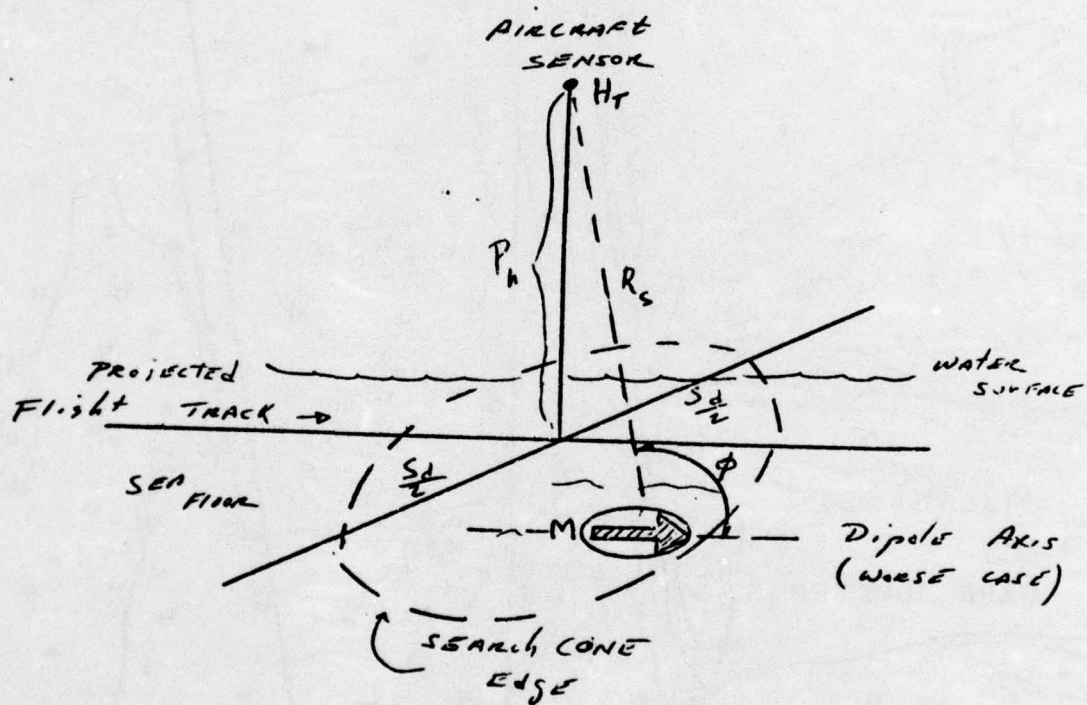 AIRCRAFT
SENSOR
H_T
P_h
R_s
PROJECTED
Flight TRACK →
WATER
SURFACE
S_d/2
S_d/2
φ
SEA FLOOR
M
Dipole Axis
(WORSE CASE)
SEARCH CONE
Edge